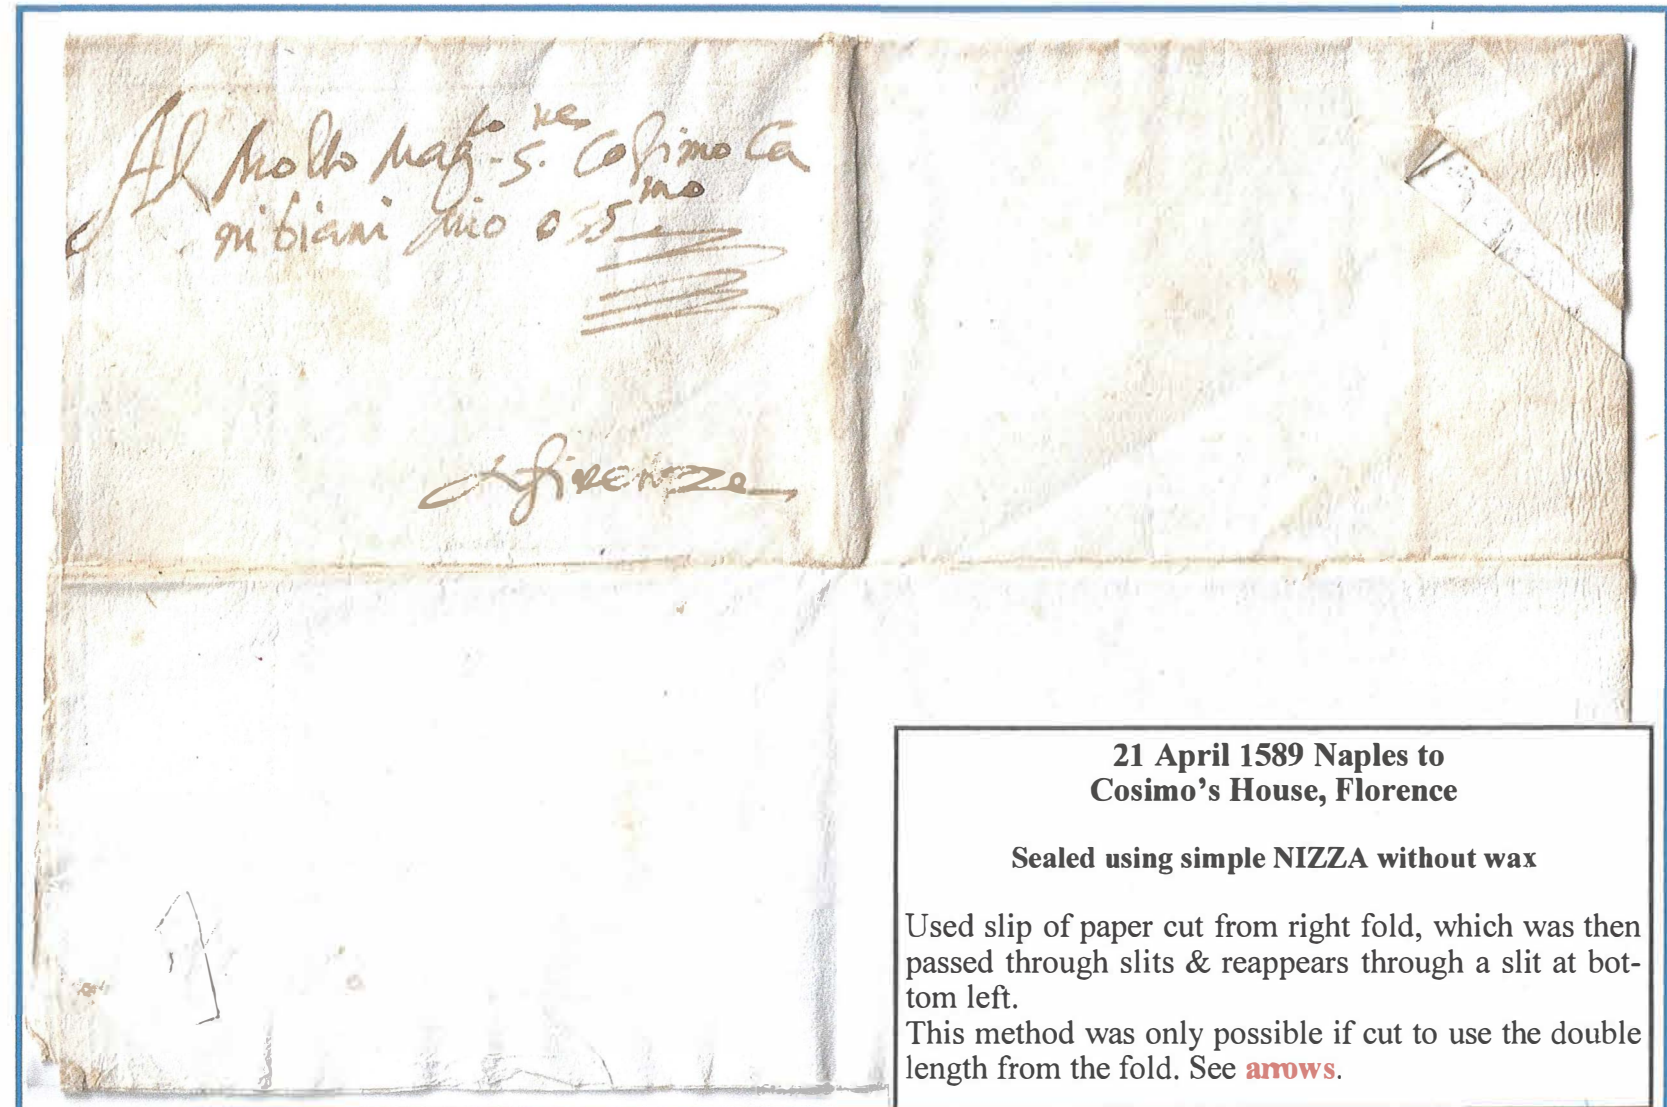 Al Molto Mag.^to S.^re Cosimo Ca
nibiani mio oss^mo
firenze
21 April 1589 Naples to
Cosimo’s House, Florence
Sealed using simple NIZZA without wax
Used slip of paper cut from right fold, which was then
passed through slits & reappears through a slit at bot-
tom left.
This method was only possible if cut to use the double
length from the fold. See arrows.